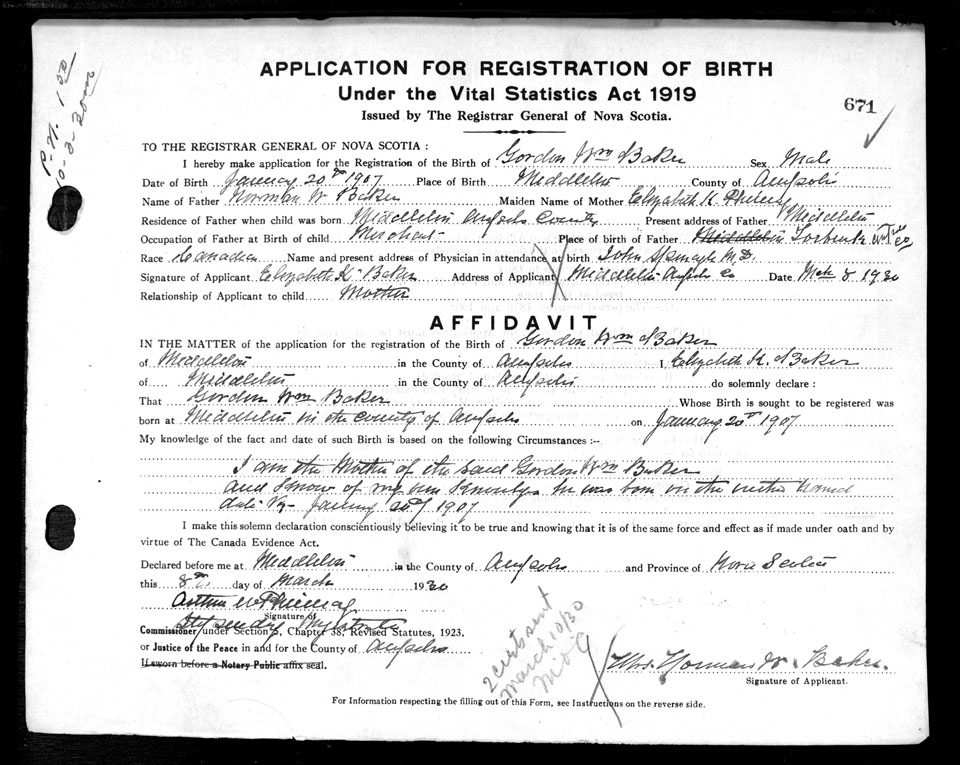 P.N. 1.00
10-3-20
APPLICATION FOR REGISTRATION OF BIRTH
Under the Vital Statistics Act 1919
671
Issued by The Registrar General of Nova Scotia.
TO THE REGISTRAR GENERAL OF NOVA SCOTIA :
I hereby make application for the Registration of the Birth of Gordon Wm Baker Sex Male
Date of Birth January 20th 1907 Place of Birth Middleton County of Annapolis
Name of Father Norman W Baker Maiden Name of Mother Elizabeth K. Phinney
Residence of Father when child was born Middleton Annapolis County Present address of Father Middleton
Occupation of Father at Birth of child Merchant Place of Birth of Father Middleton Torbrook
Race Canadian Name and present address of Physician in attendance at birth John Sponagle M.D.
Signature of Applicant Elizabeth K. Baker Address of Applicant Middleton Annapolis Co Date Mch 8 1930
Relationship of Applicant to child Mother
AFFIDAVIT
IN THE MATTER of the application for the registration of the Birth of Gordon Wm Baker
of Middleton in the County of Annapolis I Elizabeth K. Baker
of Middleton in the County of Annapolis do solemnly declare :
That Gordon Wm Baker Whose Birth is sought to be registered was
born at Middleton in the County of Annapolis on January 20th 1907
My knowledge of the fact and date of such Birth is based on the following Circumstances :--
I am the Mother of the said Gordon Wm Baker
and know of my own knowledge he was born on the within named
date January 20th 1907
I make this solemn declaration conscientiously believing it to be true and knowing that it is of the same force and effect as if made under oath and by
virtue of The Canada Evidence Act.
Declared before me at Middleton in the County of Annapolis and Province of Nova Scotia
this 8th day of March 1930
Arthur W Phinney
Signature of
Stipendiary Magistrate
Commissioner under Section 5, Chapter 38, Revised Statutes, 1923,
or Justice of the Peace in and for the County of Annapolis
If sworn before a Notary Public affix seal.
2 certs sent
March 10/30
Mrs. Norman W. Baker.
Signature of Applicant.
For Information respecting the filling out of this Form, see Instructions on the reverse side.